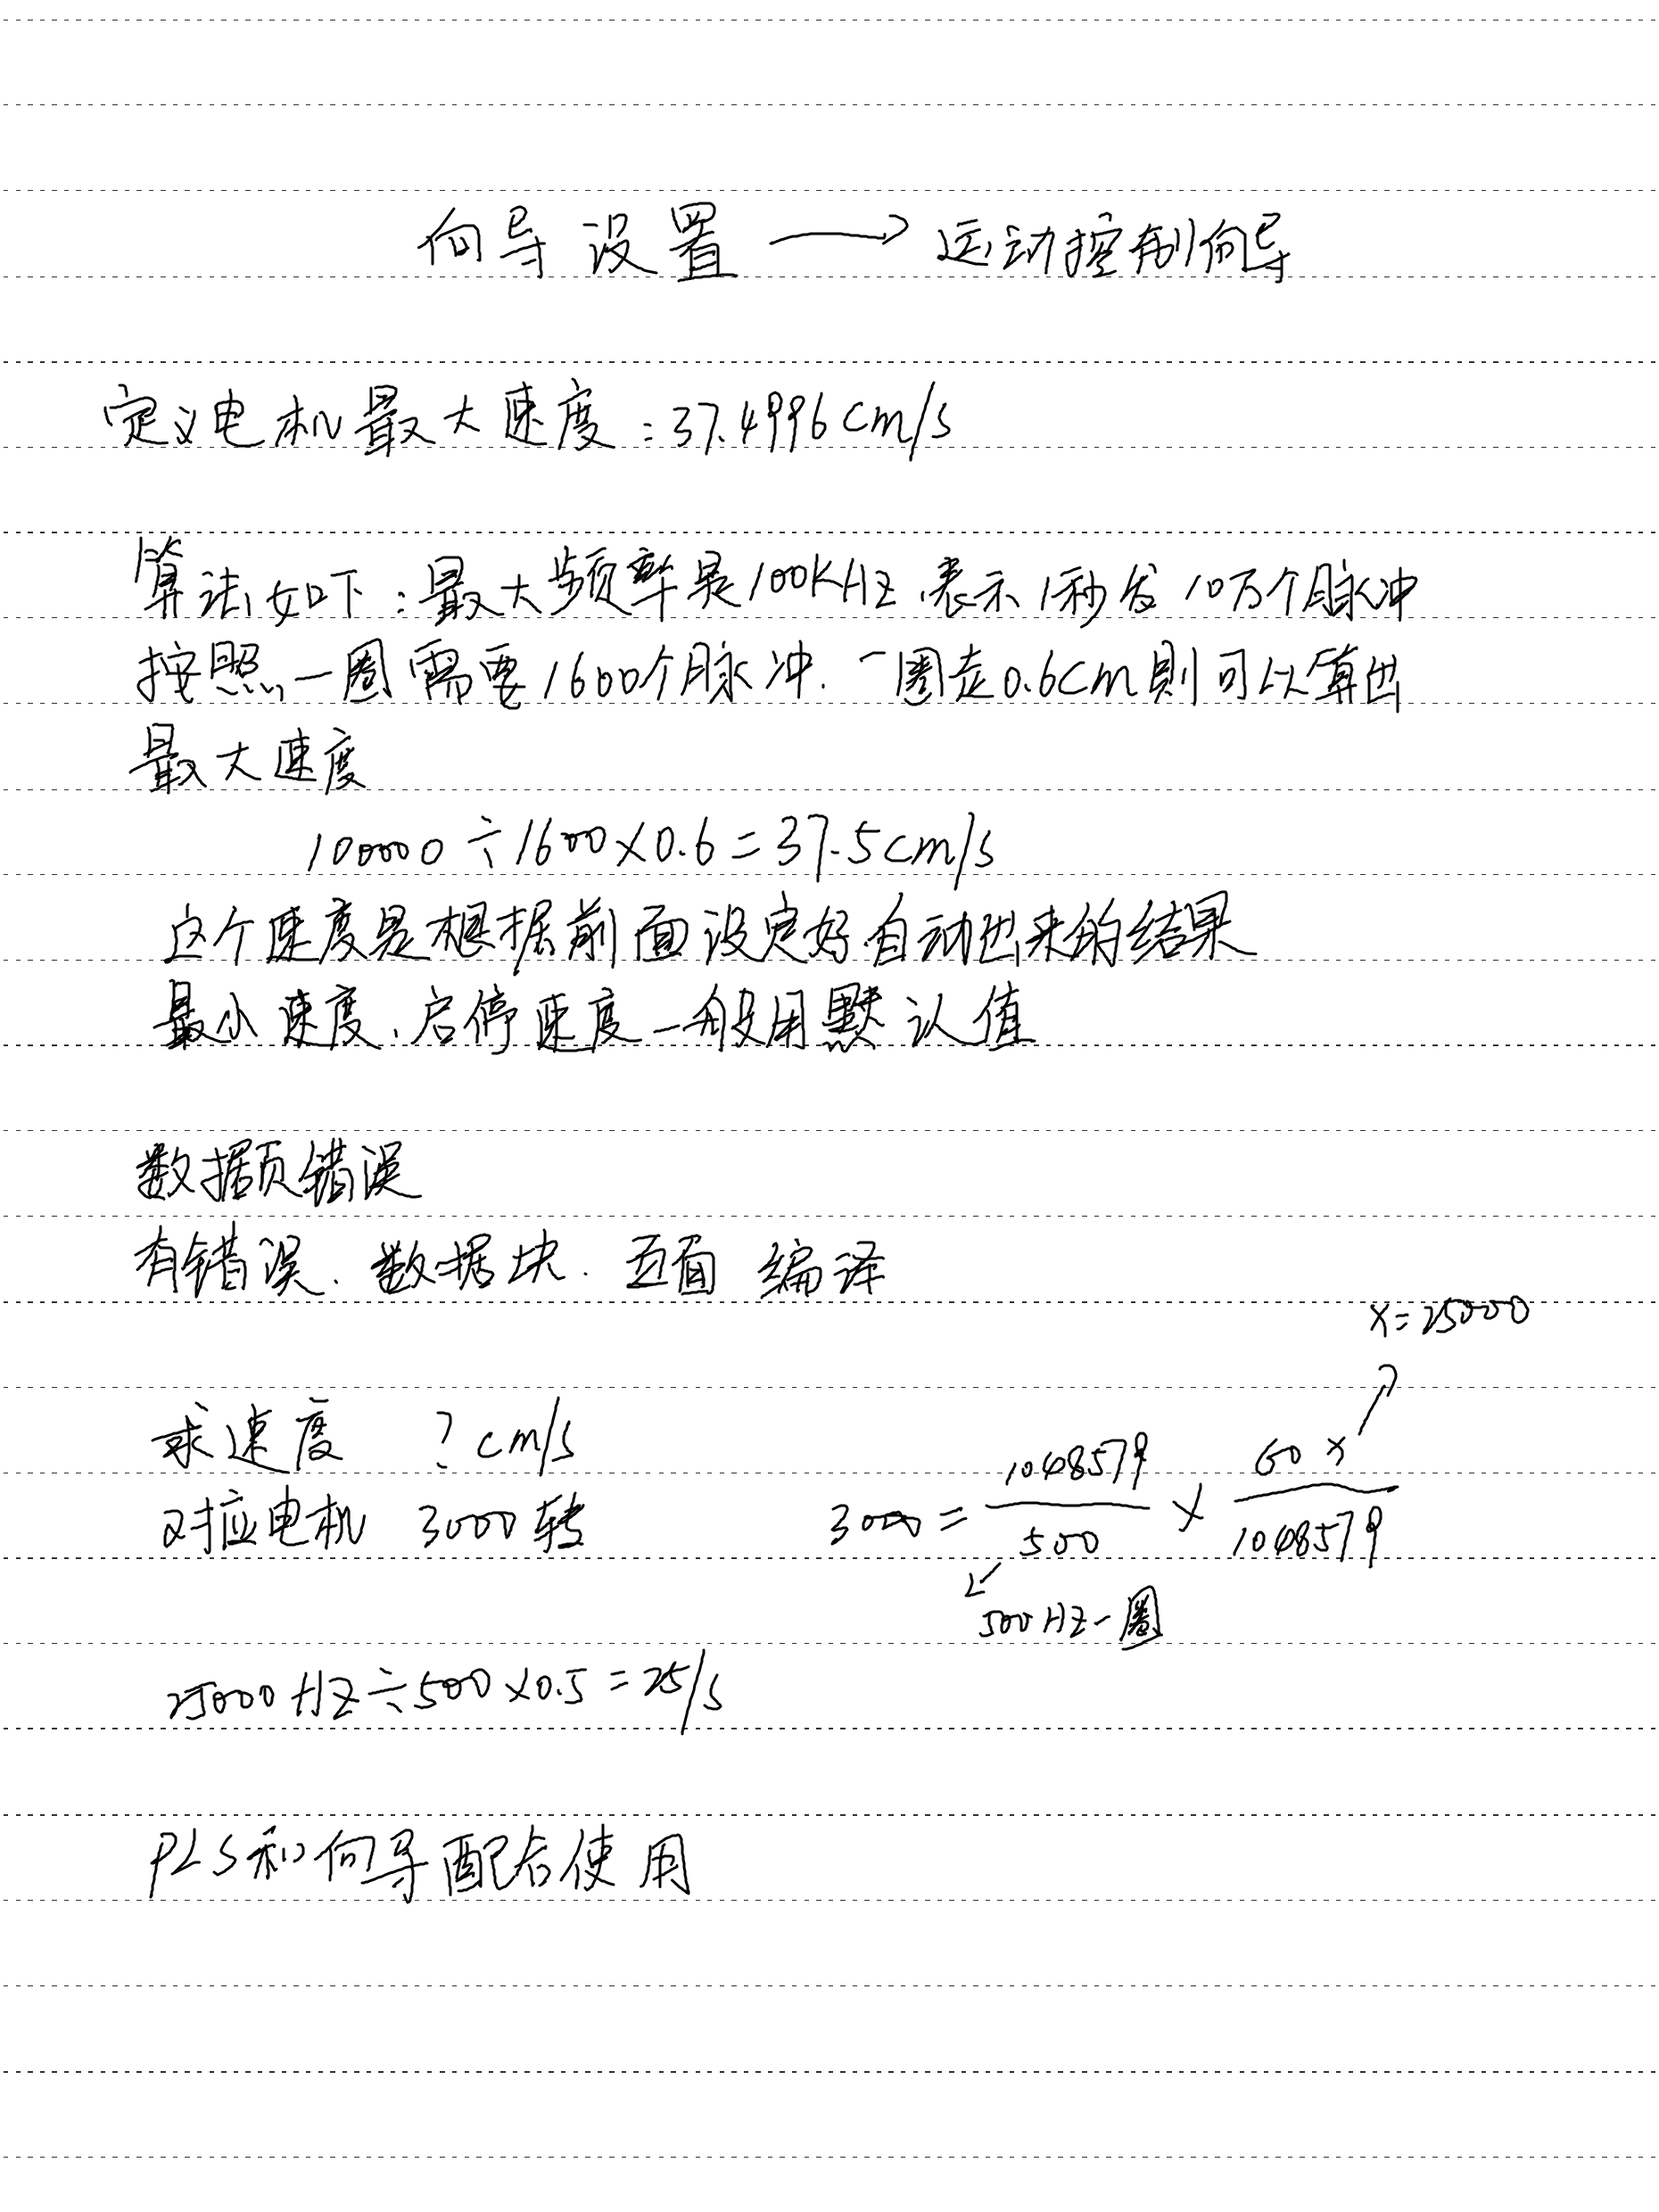 向导设置 → 运动控制向导
定义电机最大速度:37.4996cm/s
算法如下:最大频率是100KHZ、表示1秒发10万个脉冲
按照一圈需要1600个脉冲.一圈走0.6cm则可以算出
最大速度
100000÷1600×0.6=37.5cm/s
这个速度是根据前面设定好自动出来的结果
最小速度、启停速度一般用默认值
数据页错误
有错误.数据块.页面 编译
x=25000
求速度 ? cm/s
对应电机 3000转
3000 = 1048579/500 × 60x/1048579
500HZ一圈
25000HZ÷500×0.5=25/s
PLS和向导配合使用